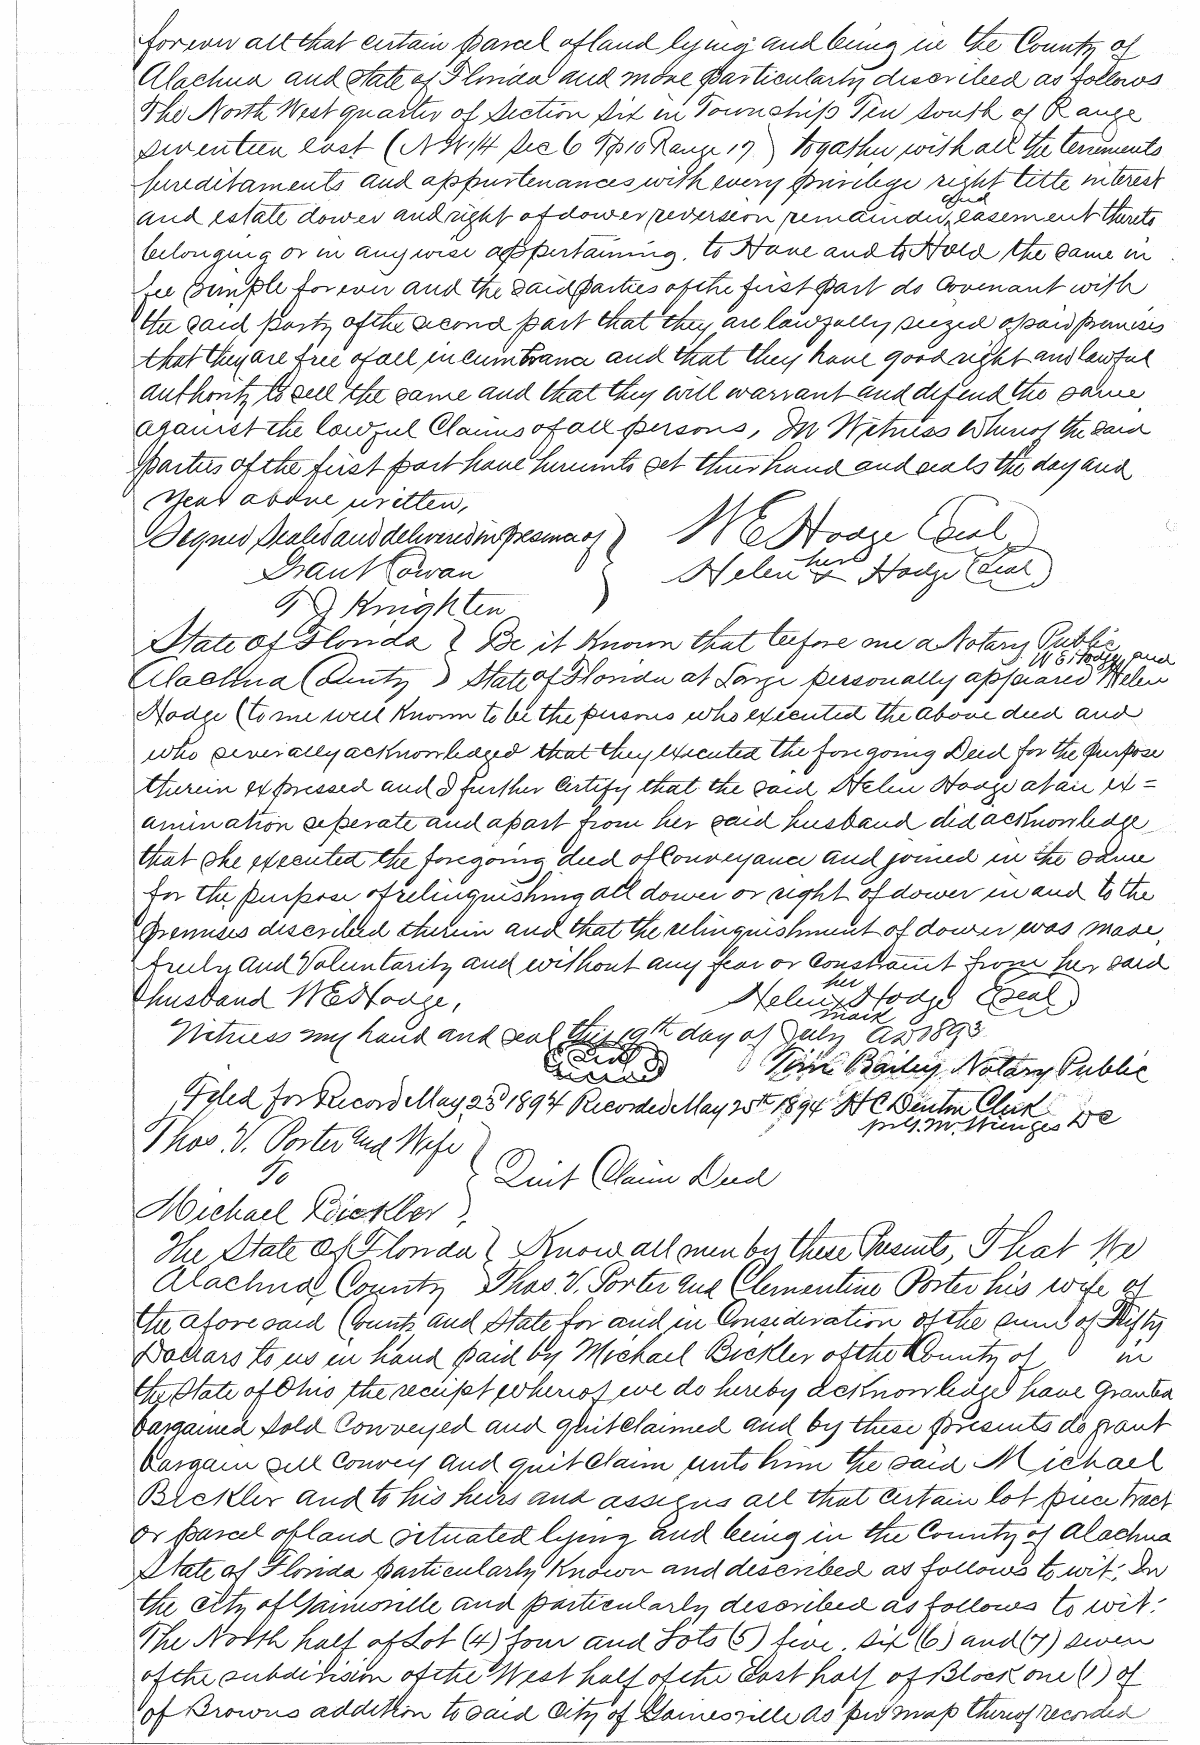 forever all that certain parcel of land lying and being in the County of
Alachua and State of Florida and more particularly described as follows
The North West quarter of Section Six in Township Ten South of Range
seventeen east (N W 1/4 Sec 6 Tp 10 Range 17) together with all the tenements
hereditaments and appurtenances with every privilege right title interest
and estate dower and right of dower reversion remainder and easement thereto
belonging or in anywise appertaining. to Have and to Hold the same in
fee simple forever and the said parties of the first part do covenant with
the said party of the second part that they are lawfully seized of said premises
that they are free of all incumbrance and that they have good right and lawful
authority to sell the same and that they will warrant and defend the same
against the lawful Claims of all persons, In Witness Whereof the said
parties of the first part have hereunto set their hand and seals the day and
year above written,
Signed Sealed and delivered in presence of } W E Hodge (Seal)
Grant Cowan Helen her x Hodge (Seal)
T J Knighten
State of Florida } Be it Known that before me a Notary Public
Alachua County } State of Florida at Large personally appeared W E Hodge and Helen
Hodge (to me well Known to be the persons who executed the above deed and
who severally acknowledged that they executed the foregoing Deed for the purpose
therein expressed and I further certify that the said Helen Hodge at an ex=
amination seperate and apart from her said husband did acknowledge
that she executed the foregoing deed of Conveyance and joined in the same
for the purpose of relinquishing all dower or right of dower in and to the
premises described therein and that the relinquishment of dower was made
freely and Voluntarily and without any fear or constraint from her said
husband W E Hodge, Helen her x mark Hodge (Seal)
Witness my hand and seal this 19th day of July AD 1893
(Seal) Bailey Notary Public
Filed for Record May 23d 1894 Recorded May 25th 1894 H C Denton Clerk
DC
Thos. V. Porter and Wife
To } Quit Claim Deed
Michael Bickler
The State of Florida } Know all men by these Presents, That We
Alachua County Thos. V. Porter and Clementine Porter his wife of
the aforesaid County and State for and in Consideration of the sum of Fifty
Dollars to us in hand paid by Michael Bickler of the County of in
the State of Ohio the receipt whereof we do hereby acknowledge have granted
bargained sold Conveyed and quitclaimed and by these presents do grant
bargain sell convey and quit claim unto him the said Michael
Bickler and to his heirs and assigns all that certain lot piece tract
or parcel of land situated lying and being in the County of Alachua
State of Florida particularly Known and described as follows to wit: In
the city of Gainesville and particularly described as follows to wit:
The North half of Lot (4) four and Lots (5) five. six (6) and (7) seven
of the subdivision of the West half of the East half of Block one (1) of
of Browns addition to said City of Gainesville as per map thereof recorded